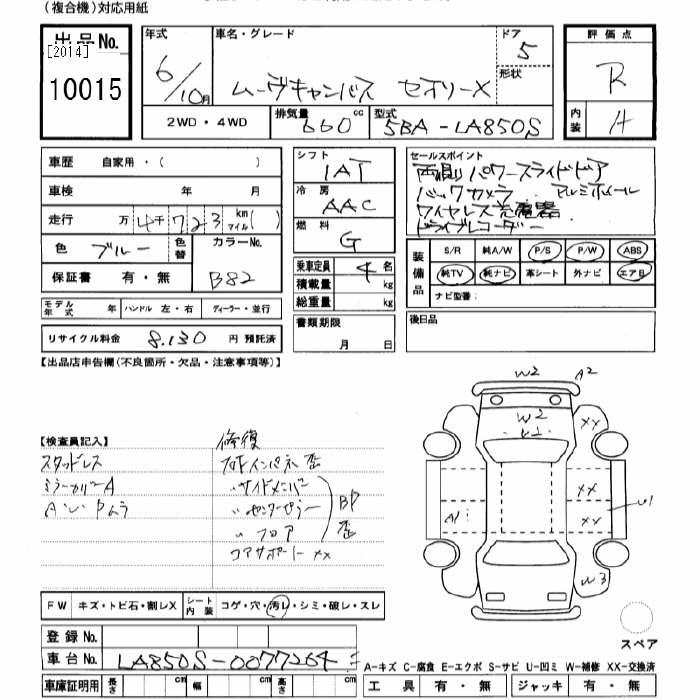 (複合機)対応用紙
出品No. [2014]
10015
年式 6/10月
車名・グレード ムーヴキャンバス セオリーX
ドア 5
形状
評価点 R
内装 A
2WD・4WD
排気量 660cc
型式 5BA-LA850S
車歴 自家用・( )
車検 年 月
走行 万 4千723 km マイル( )
色 ブルー 色替
カラーNo. B82
保証書 有・無
シフト IAT
冷房 AAC
燃料 G
乗車定員 4名
積載量 kg
総重量 kg
書類期限 月 日
セールスポイント
両側パワースライドドア
バックカメラ アルミホイール
ワイヤレス充電器
ドライブレコーダー
装備品 S/R 純A/W P/S P/W ABS
純TV 純ナビ 革シート 外ナビ エアB
ナビ型番:
モデル年式 年 ハンドル 左・右 ディーラー・並行
リサイクル料金 8,130 円 預託済
後日品
【出品店申告欄(不良箇所・欠品・注意事項等)】
W2 A2
W2
XX
XX
XX
U1
A1
W3
【検査員記入】
スタッドレス
ミラーカバーA
修復
サイドメンバー
センターピラー
フロア
BP歪
コアサポートXX
FW キズ・トビ石・割レX シート内装 コゲ・穴・汚レ・シミ・破レ・スレ
スペア
登録No.
車台No. LA850S-0077264
A-キズ C-腐食 E-エクボ S-サビ U-凹ミ W-補修 XX-交換済
車庫証明用 長さ cm 幅 cm 高さ cm
工具 有・無 ジャッキ 有・無